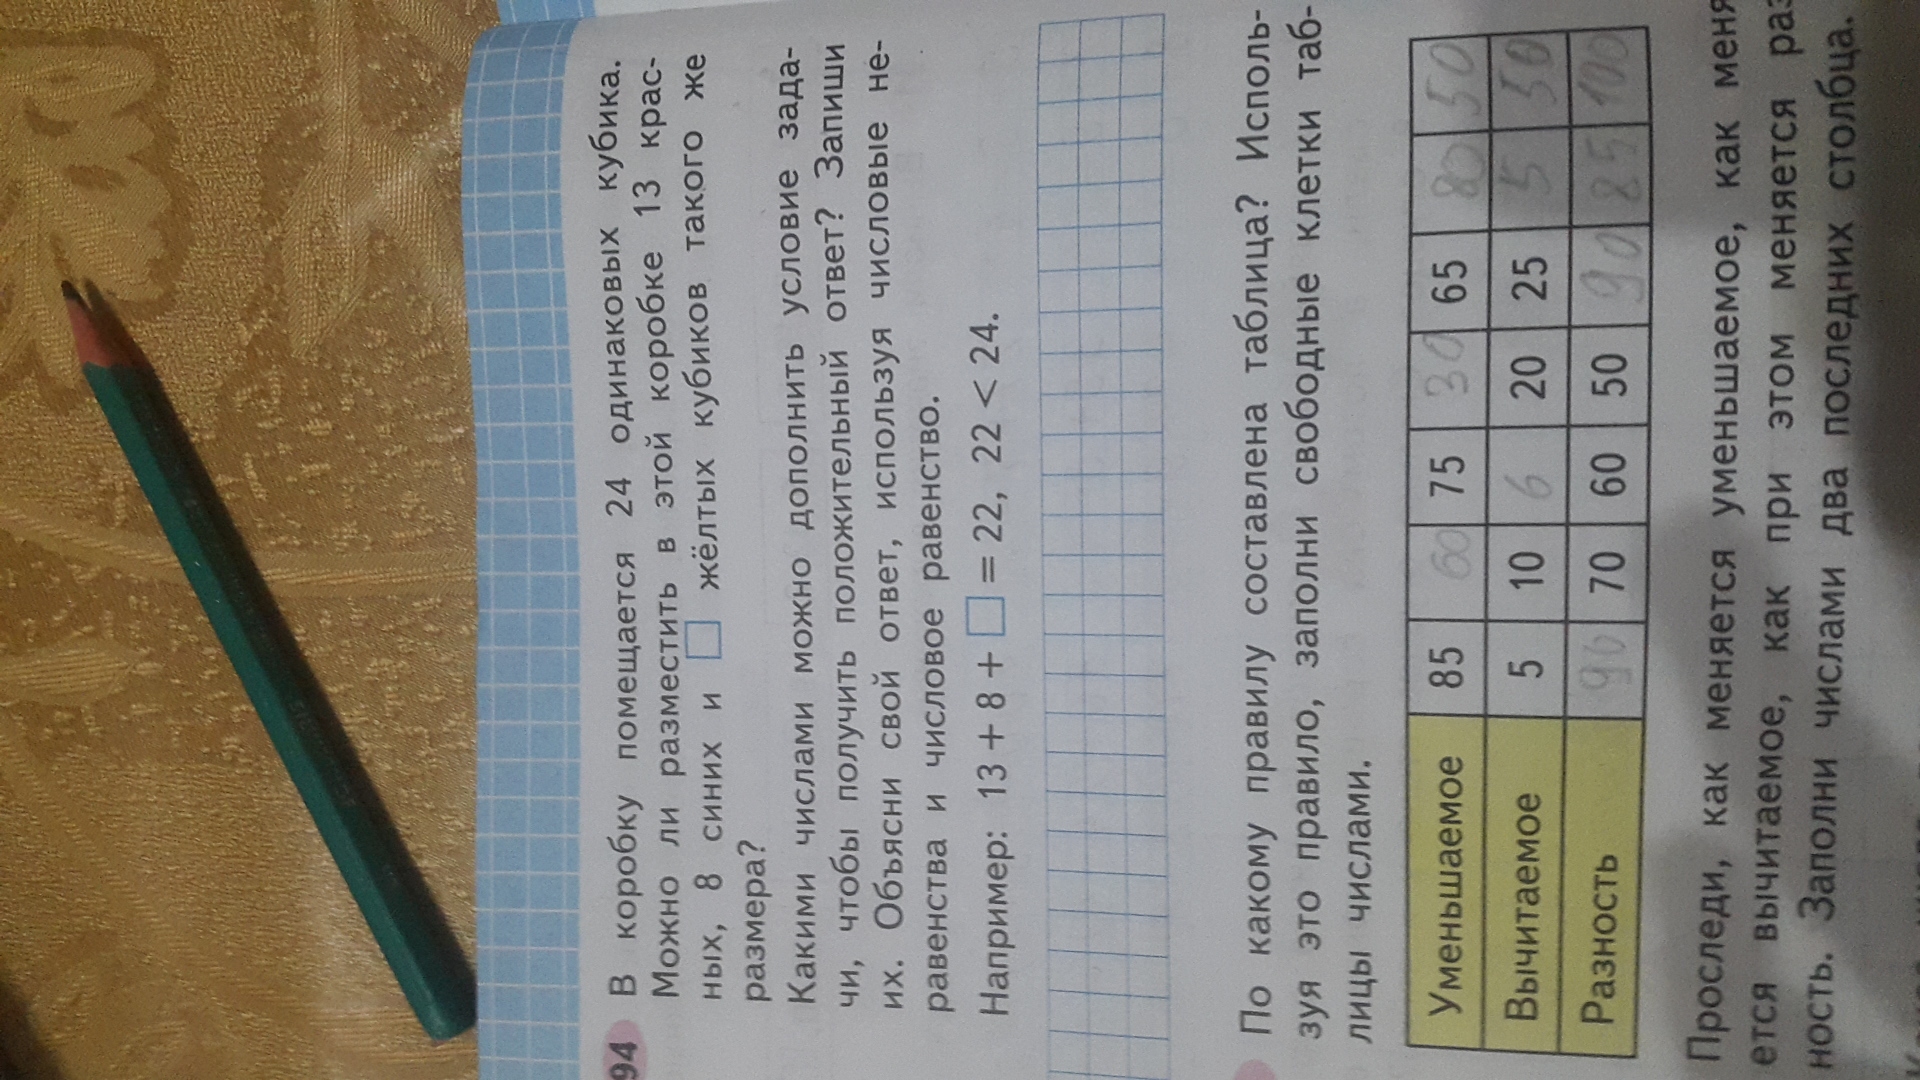 94 В коробку помещается 24 одинаковых кубика.
Можно ли разместить в этой коробке 13 крас-
ных, 8 синих и □ жёлтых кубиков такого же
размера?
Какими числами можно дополнить условие зада-
чи, чтобы получить положительный ответ? Запиши
их. Объясни свой ответ, используя числовые не-
равенства и числовое равенство.
Например: 13 + 8 + □ = 22, 22 < 24.
По какому правилу составлена таблица? Исполь-
зуя это правило, заполни свободные клетки таб-
лицы числами.
Уменьшаемое 85 60 75 30 65 80 50
Вычитаемое 5 10 6 20 25 5 50
Разность 90 70 60 50 90 85 100
Проследи, как меняется уменьшаемое, как меня
ется вычитаемое, как при этом меняется раз
ность. Заполни числами два последних столбца.